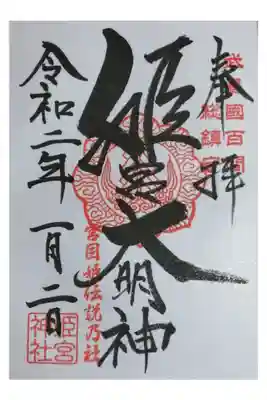 奉拝
武蔵國百間
総鎮守
姫宮大明神
宮目姫伝説乃社
令和二年一月二日
姫宮神社